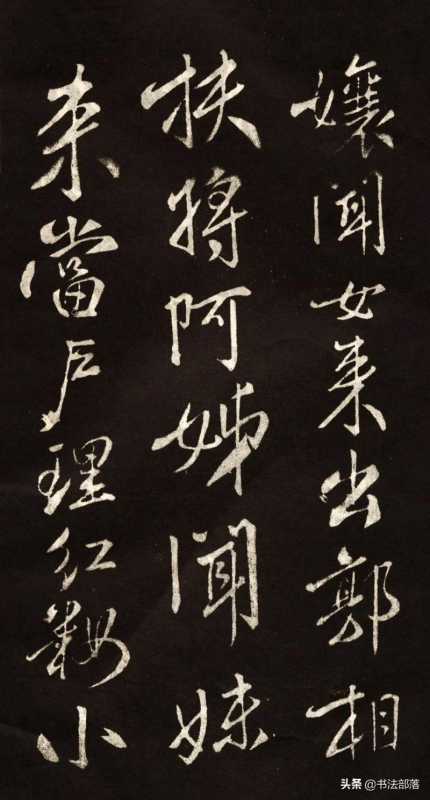 孃聞女来出郭相
扶將阿姊聞妹
来當户理红粧小
头条 @书法部落